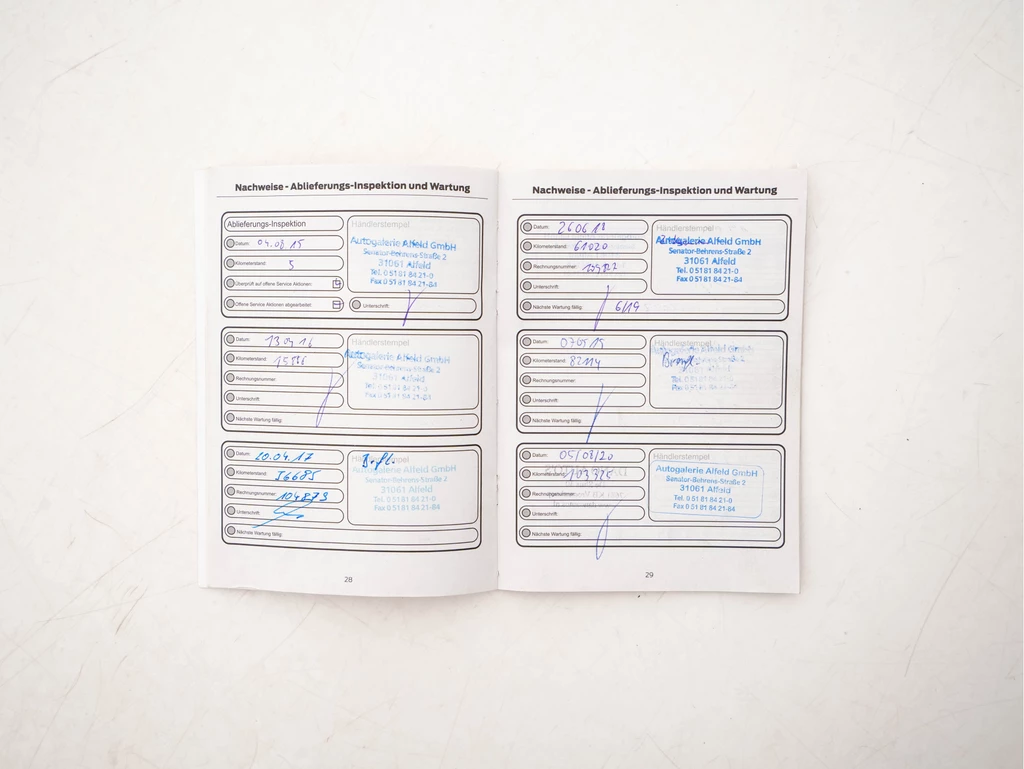 Nachweise - Ablieferungs-Inspektion und Wartung
Ablieferungs-Inspektion
Datum: 04.08.15
Kilometerstand: 5
Überprüft auf offene Service Aktionen:
Offene Service Aktionen abgearbeitet:
Händlerstempel
Autogalerie Alfeld GmbH
Senator-Behrens-Straße 2
31061 Alfeld
Tel. 0 51 81 84 21-0
Fax 0 51 81 84 21-84
Unterschrift:
Datum: 13 04 16
Kilometerstand:
Rechnungsnummer:
Unterschrift:
Nächste Wartung fällig:
Händlerstempel
Autogalerie Alfeld GmbH
Senator-Behrens-Straße 2
31061 Alfeld
Tel. 0 51 81 84 21-0
Fax 0 51 81 84 21-84
Datum: 20.04.17
Kilometerstand: 36685
Rechnungsnummer: 104873
Unterschrift:
Nächste Wartung fällig:
Händlerstempel
Autogalerie Alfeld GmbH
Senator-Behrens-Straße 2
31061 Alfeld
Tel. 0 51 81 84 21-0
Fax 0 51 81 84 21-84
28
Nachweise - Ablieferungs-Inspektion und Wartung
Datum: 260618
Kilometerstand: 61020
Rechnungsnummer:
Unterschrift:
Nächste Wartung fällig: 6/19
Händlerstempel
Autogalerie Alfeld GmbH
Senator-Behrens-Straße 2
31061 Alfeld
Tel. 0 51 81 84 21-0
Fax 0 51 81 84 21-84
Datum: 070519
Kilometerstand: 82114
Rechnungsnummer:
Unterschrift:
Nächste Wartung fällig:
Händlerstempel
Datum: 05/08/20
Kilometerstand: 103325
Rechnungsnummer:
Unterschrift:
Nächste Wartung fällig:
Händlerstempel
Autogalerie Alfeld GmbH
Senator-Behrens-Straße 2
31061 Alfeld
Tel. 0 51 81 84 21-0
Fax 0 51 81 84 21-84
29